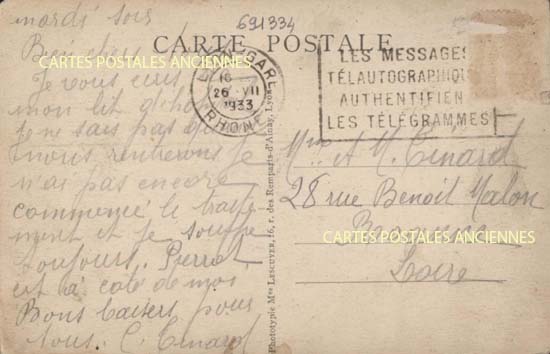 mardi soir
691334
Bien chers
CARTE POSTALE
CARTES POSTALES ANCIENNES
Je vous écris
mon lit d'hôp
je ne sais pas
nous rentrerons je
n'ai pas encore
commencé le traite-
ment et je souffre
toujours. Pierrot
est à côté de moi
Bons baisers pour
tous. C. Cinard
LYON GARE
16
26 VII
1933
RHONE
LES MESSAGES
TÉLAUTOGRAPHIQU
AUTHENTIFIEN
LES TÉLÉGRAMMES
Phototypie Mme LESCUYER, 16, r. des Remparts-d'Ainay, Lyon
M. Cinard
28 rue Benoit Malon
CARTES POSTALES ANCIENNES
Loire